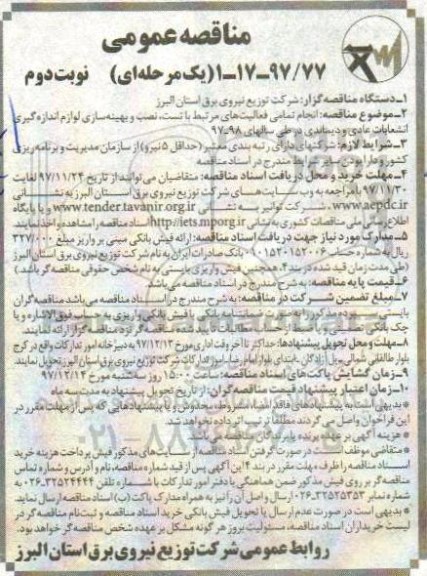 مناقصه عمومی
۹۷/۷۷-۱۷-۱(یک مرحله‌ای) نوبت دوم
۱-دستگاه مناقصه‌گزار: شرکت توزیع نیروی برق استان البرز
۲-موضوع مناقصه: انجام تمامی فعالیت‌های مرتبط با تست، نصب و بهینه‌سازی لوازم اندازه‌گیری
انشعابات عادی و دیماندی در طی سالهای ۹۸-۹۷
۳-شرایط لازم: شرکتهای دارای رتبه بندی معتبر (حداقل ۵ نیرو) از سازمان مدیریت و برنامه ریزی
کشور و دارا بودن سایر شرایط مندرج در اسناد مناقصه
۴-مهلت خرید و محل دریافت اسناد مناقصه: متقاضیان می‌توانند از تاریخ ۹۷/۱۱/۲۴ لغایت
۹۷/۱۱/۳۰ با مراجعه به وب سایت‌های شرکت توزیع نیروی برق استان البرز به نشانی
www.aepdc.ir، شرکت توانیر به نشانی www.tender.tavanir.org.ir و یا پایگاه
اطلاع رسانی ملی مناقصات کشوری به نشانی http://iets.mporg.ir اسناد مناقصه را مشاهده و اخذ نمایند.
۵-مدارک مورد نیاز جهت دریافت اسناد مناقصه: ارائه فیش بانکی مبنی بر واریز مبلغ ۳۲۷/۰۰۰
ریال به شماره حساب ۰۱۵۲۰۱۵۲۰۰۶ بانک صادرات ایران به نام شرکت توزیع نیروی برق استان البرز
(طی مدت زمان قید شده در بند ۴. همچنین فیش واریزی بایستی به نام شخص حقوقی مناقصه‌گر باشد.)
۶-قیمت پایه مناقصه: به شرح مندرج در اسناد مناقصه می‌باشد.
۷-مبلغ تضمین شرکت در مناقصه: به شرح مندرج در اسناد مناقصه می‌باشد مناقصه‌گران
بایستی سپرده مذکور را به صورت ضمانتنامه بانکی یا فیش بانکی واریزی به حساب فوق الاشاره و یا
چک بانکی تضمینی و یا ضبط از حساب مطالبات تایید شده مناقصه‌گر نزد مناقصه‌گزار ارائه نمایند.
۸-مهلت و محل تحویل پیشنهادها: حداکثر تا آخر وقت اداری مورخ ۹۷/۱۲/۱۳ به دبیرخانه امور تدارکات واقع در کرج
بلوار طالقانی شمالی، پل آزادگان، ابتدای بلوار امام رضا، امور تدارکات شرکت توزیع نیروی برق استان البرز تحویل نمایند.
۹-زمان گشایش پاکت‌های اسناد مناقصه: ساعت ۱۵:۰۰ روز سه‌شنبه مورخ ۹۷/۱۲/۱۴
۱۰-زمان اعتبار پیشنهاد قیمت مناقصه‌گران: از تاریخ تحویل پیشنهاد به مدت سه ماه
* بدیهی است به پیشنهادهای فاقد امضاء، مشروط، مخدوش و یا پیشنهادهایی که پس از مهلت مقرر در
این فراخوان واصل می گردند مطلقاً ترتیب اثر داده نخواهد شد.
* هزینه آگهی بر عهده برنده یا برندگان مناقصه می‌باشد.
* متقاضی موظف است در صورت گرفتن اسناد مناقصه از سایت‌های مذکور فیش پرداخت هزینه خرید
اسناد مناقصه را ظرف مهلت مقرر در بند ۴ این آگهی پس از قید شماره مناقصه، نام و آدرس و شماره تماس
مناقصه‌گر بر روی فیش مذکور ضمن هماهنگی با دفتر امور تدارکات با شماره تلفن ۳۲۵۲۴۴۴۴-۰۲۶ به
شماره نمابر ۳۲۵۲۵۳۵۳-۰۲۶ ارسال و اصل آن را نیز به همراه مدارک پاکت (ب) اسناد مناقصه ارسال نماید.
* بدیهی است در صورت عدم ارسال یا تحویل فیش بانکی خرید اسناد مناقصه و ثبت نام مناقصه‌گر در
لیست خریداران اسناد مناقصه، مسئولیت بروز هر گونه مشکل بر عهده شخص مناقصه‌گر خواهد بود.
روابط عمومی شرکت توزیع نیروی برق استان البرز